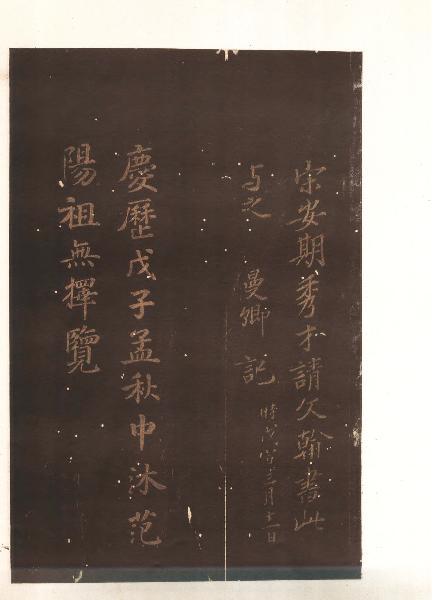 宋安期秀才請久翰書此
与之 漫卿記 時戊寅三月十一日
慶歷戊子孟秋中沐范
陽祖無擇覽